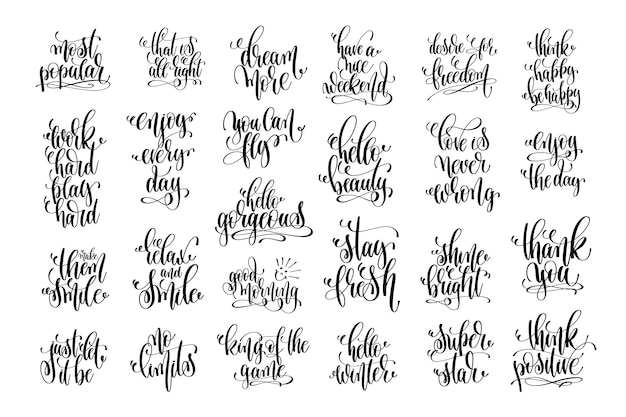 most
popular
that is
all right
dream
more
have a
nice
weekend
desire for
freedom
think
happy
be happy
work
hard
play
hard
enjoy
every
day
you can
fly
hello
beauty
love is
never
wrong
enjoy
the day
hello
gorgeous
make
them
smile
relax
and
smile
good
morning
stay
fresh
shine
bright
thank
you
just let
it be
no
limits
king of the
game
hello
winter
super
star
think
positive